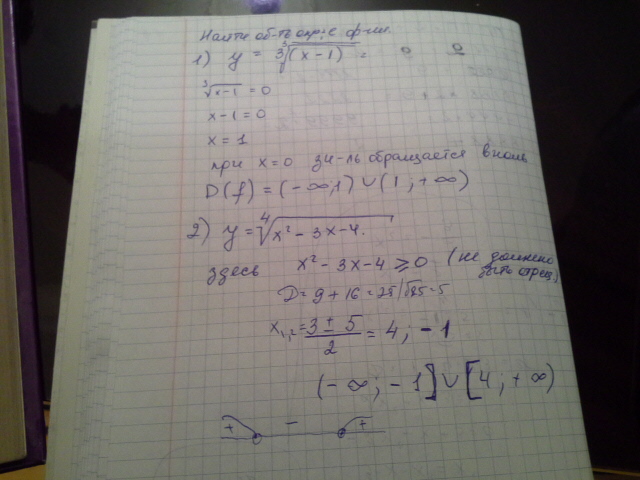 Найти об-ть опр-е ф-ии.
1) y = 3∛(x-1) =
∛x-1 = 0
x-1=0
x = 1
при x=0 зн-ль обращается в ноль
D(f) = (-∞;1) ∪ (1; +∞)
2) y = ∜x² - 3x - 4.
здесь x² - 3x - 4 ⩾ 0 (не должено
быть отриц)
D = 9 + 16 = 25 | √25 = 5
x₁,₂ = 3 ± 5 / 2 = 4; -1
(-∞; -1] ∪ [4; +∞)
+ - +